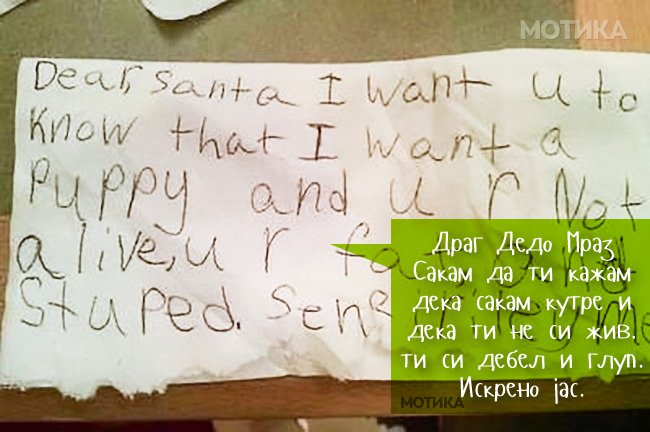 МОТИКА
Dear, santa I want u to
Know that I want a
Puppy and u r Not
alive, u r fat and
Stuped. Sen
Драг Дедо Мраз
Сакам да ти кажам
дека сакам кутре и
дека ти не си жив.
ти си дебел и глуп.
Искрено јас.
МОТИКА